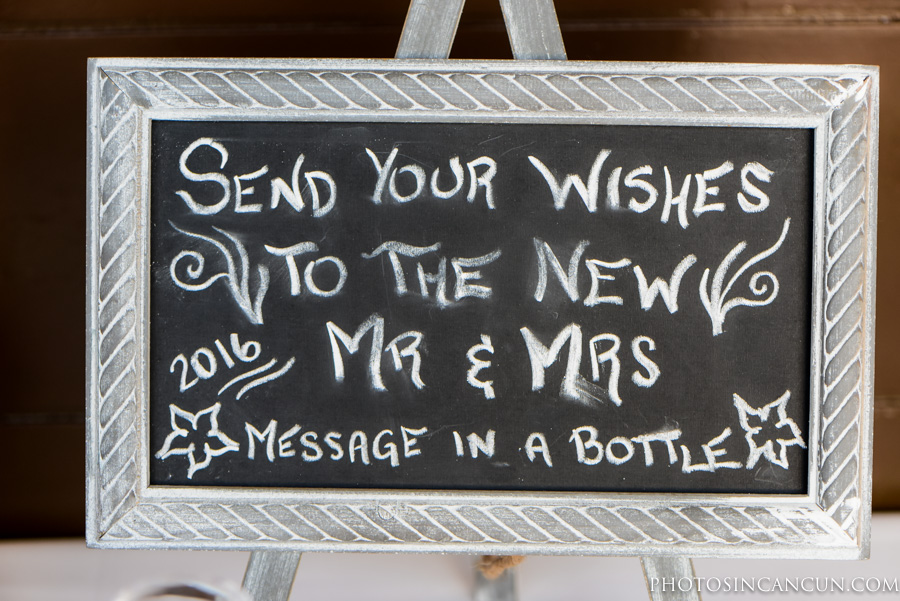 SEND YOUR WISHES
TO THE NEW
MR & MRS
2016
MESSAGE IN A BOTTLE
PHOTOSINCANCUN.COM